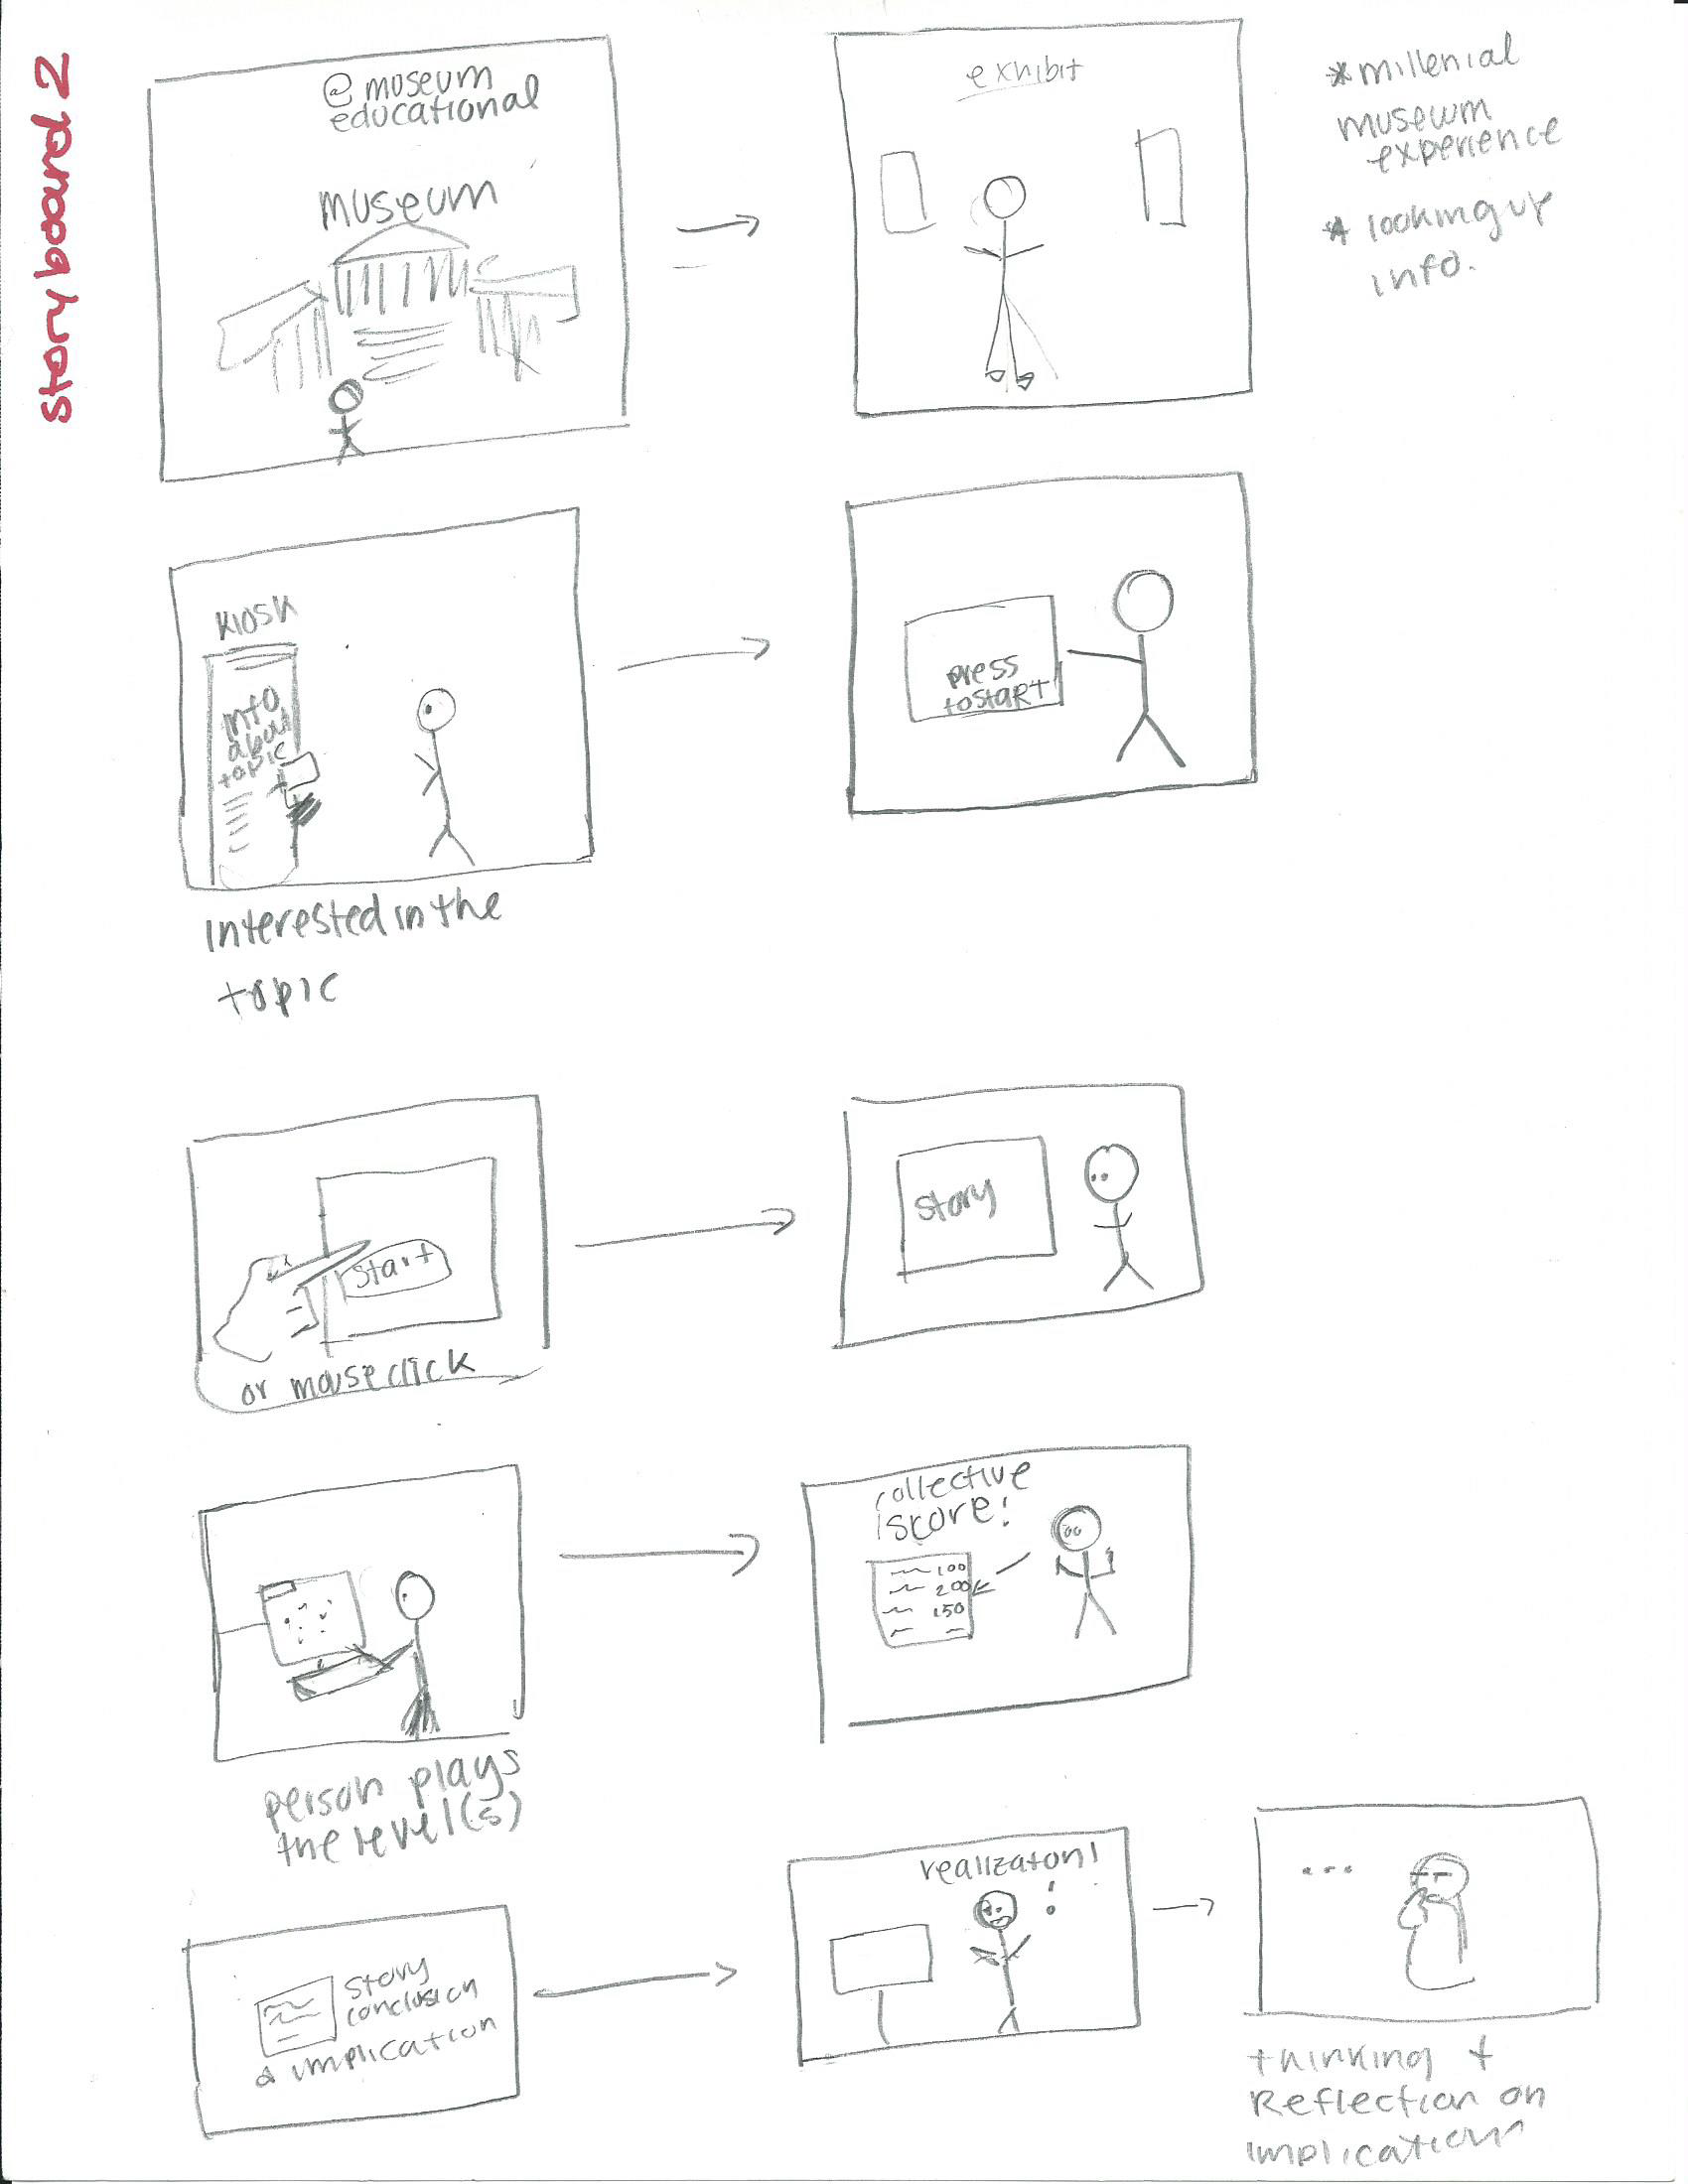 story board 2
@ museum
educational
museum
exhibit
* millenial
museum
experience
* looking up
info.
KIOSK
info
about
topic
interested in the
topic
press
to start
start
or mouse click
story
person plays
the level(s)
collective
score!
100
200
150
story
conclusion
& implication
realizaton!
!
...
thinking +
Reflection on
implication